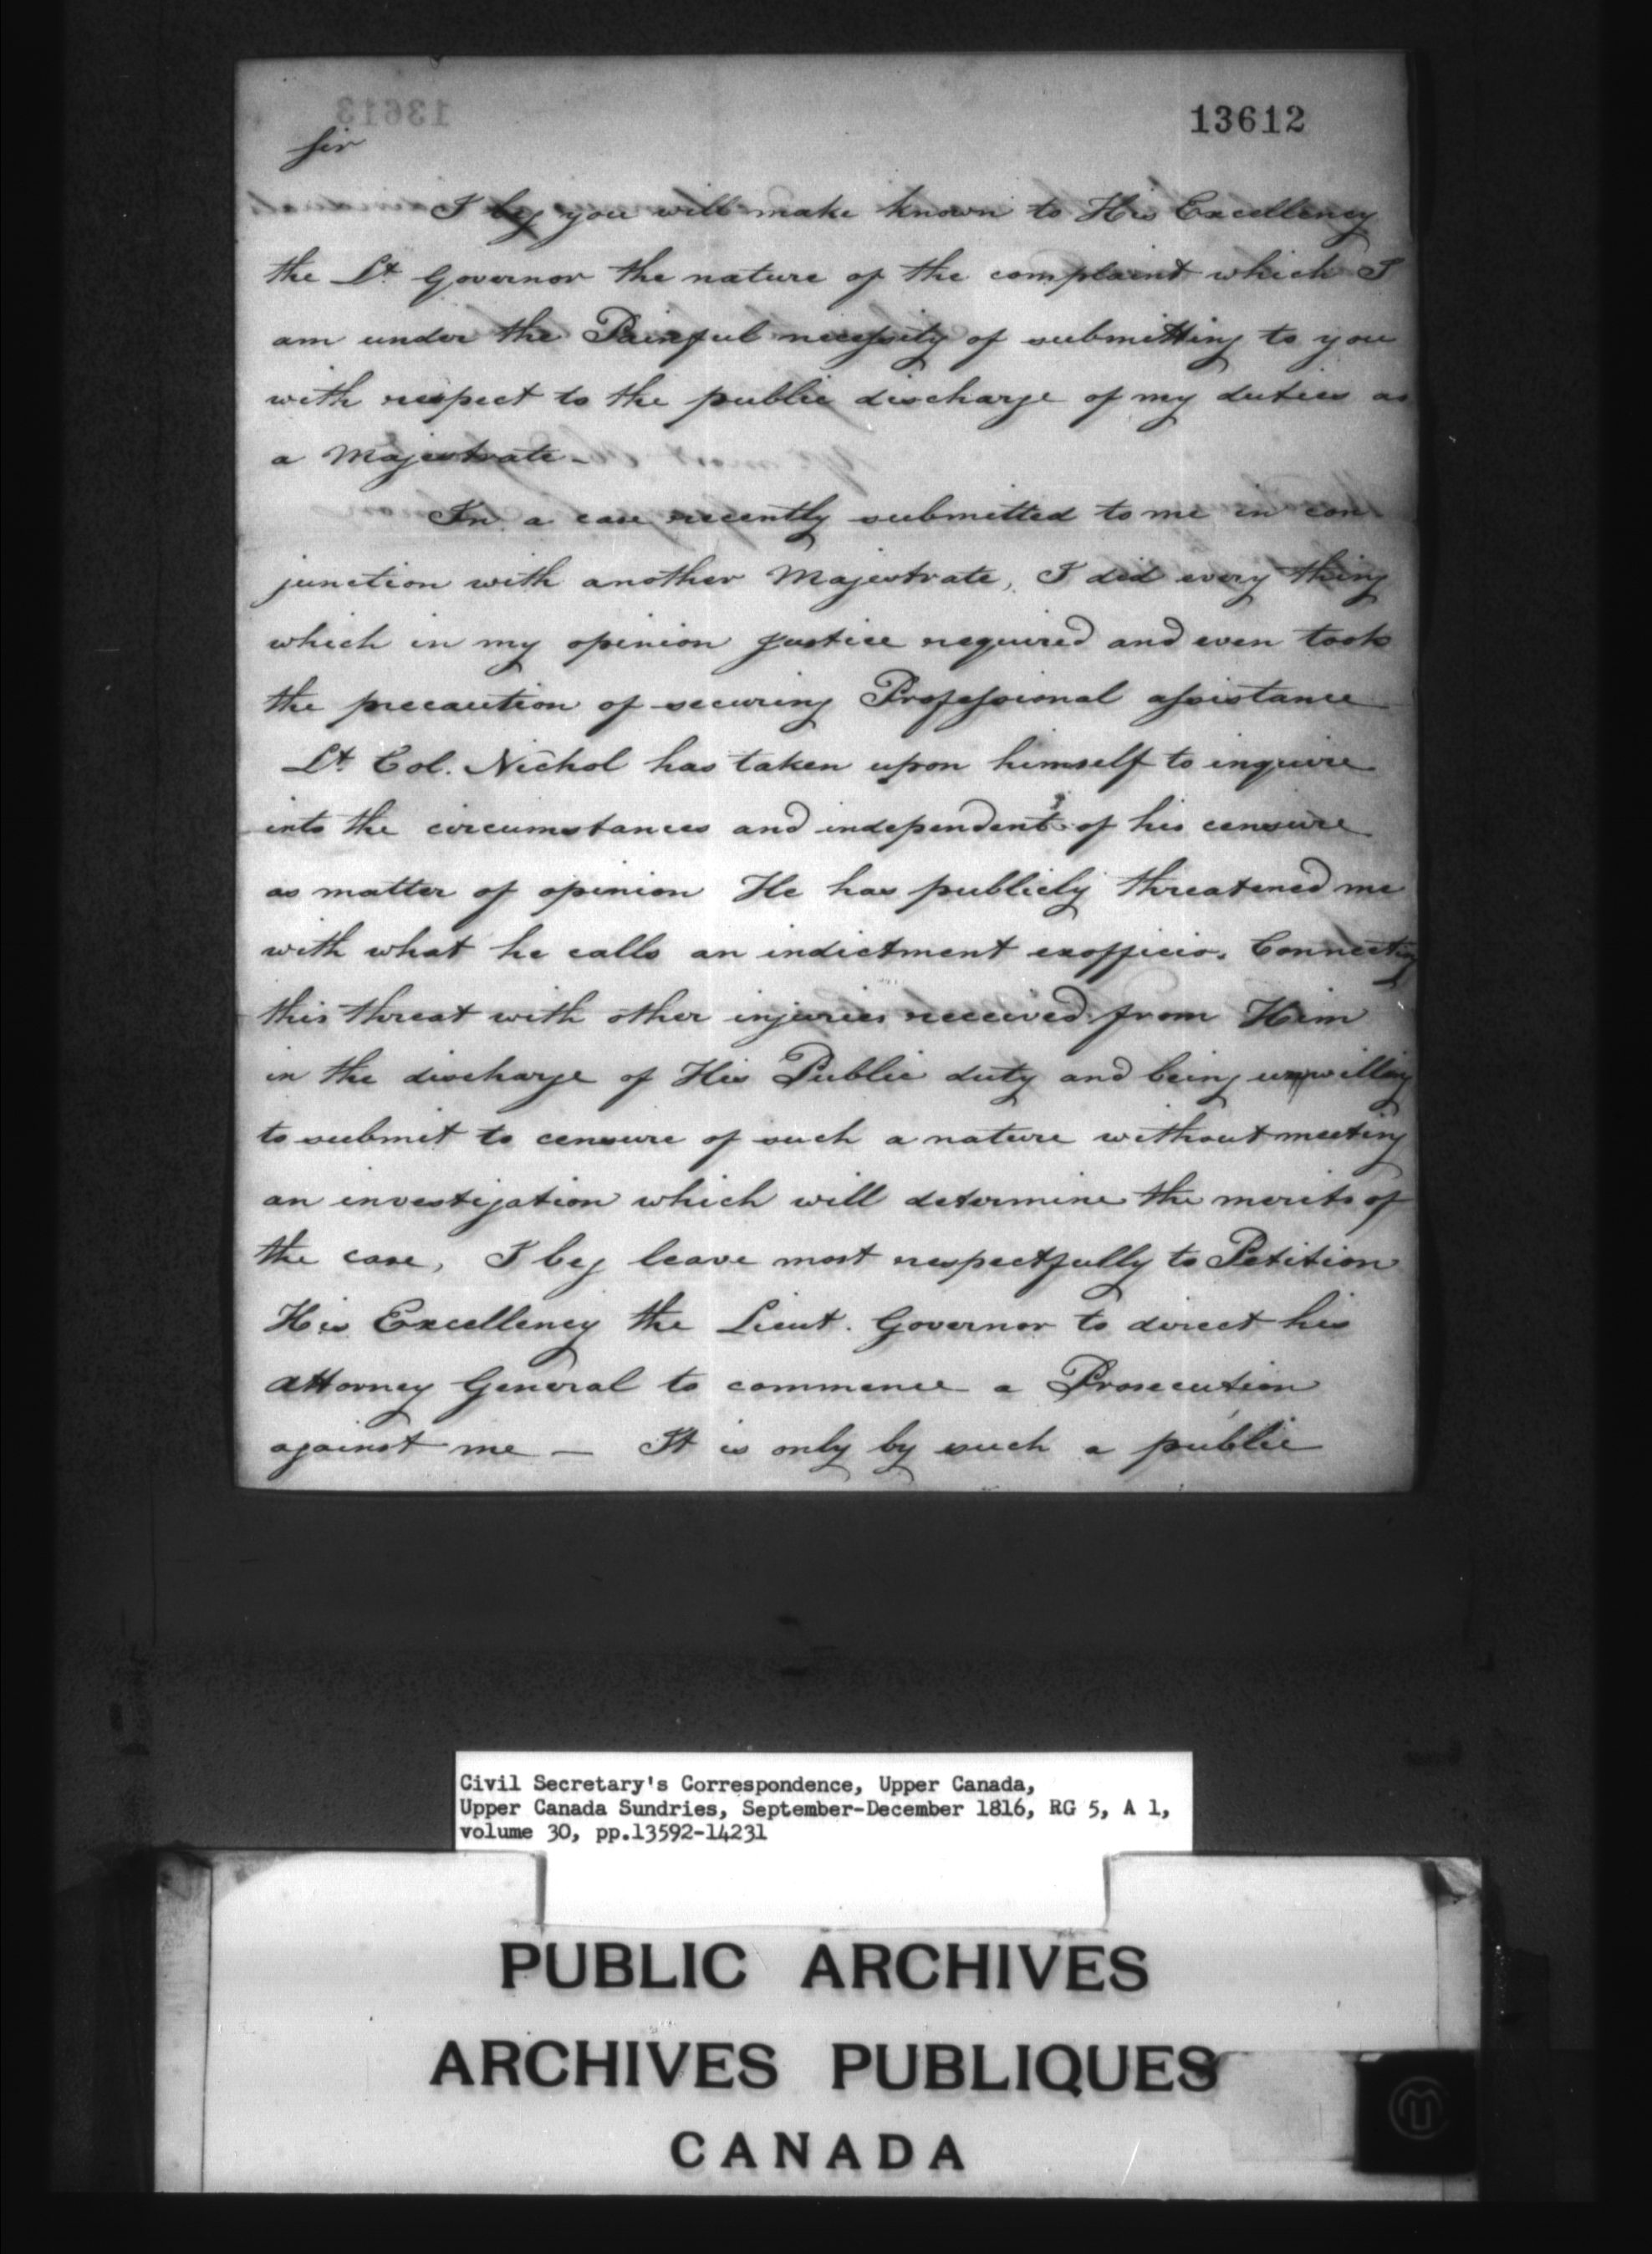 13612
Sir
I beg you will make known to His Excellency
the Lt. Governor the nature of the complaint which I
am under the Painful necessity of submitting to you
with respect to the public discharge of my duties as
a Majestrate -
In a case recently submitted to me in con
junction with another Majestrate, I did every thing
which in my opinion Justice required and even took
the precaution of securing Professional assistance
Lt. Col. Nichol has taken upon himself to inquire
into the circumstances and independent of his censure
as matter of opinion He has publicly threatened me
with what he calls an indictment exofficio. Connecting
this threat with other injuries received from Him
in the discharge of His Public duty and being unwilling
to submit to censure of such a nature without meeting
an investigation which will determine the merits of
the case, I beg leave most respectfully to Petition
His Excellency the Lieut. Governor to direct his
Attorney General to commence a Prosecution
against me — It is only by such a public
Civil Secretary's Correspondence, Upper Canada,
Upper Canada Sundries, September-December 1816, RG 5, A 1,
volume 30, pp.13592-14231
PUBLIC ARCHIVES
ARCHIVES PUBLIQUES
CANADA